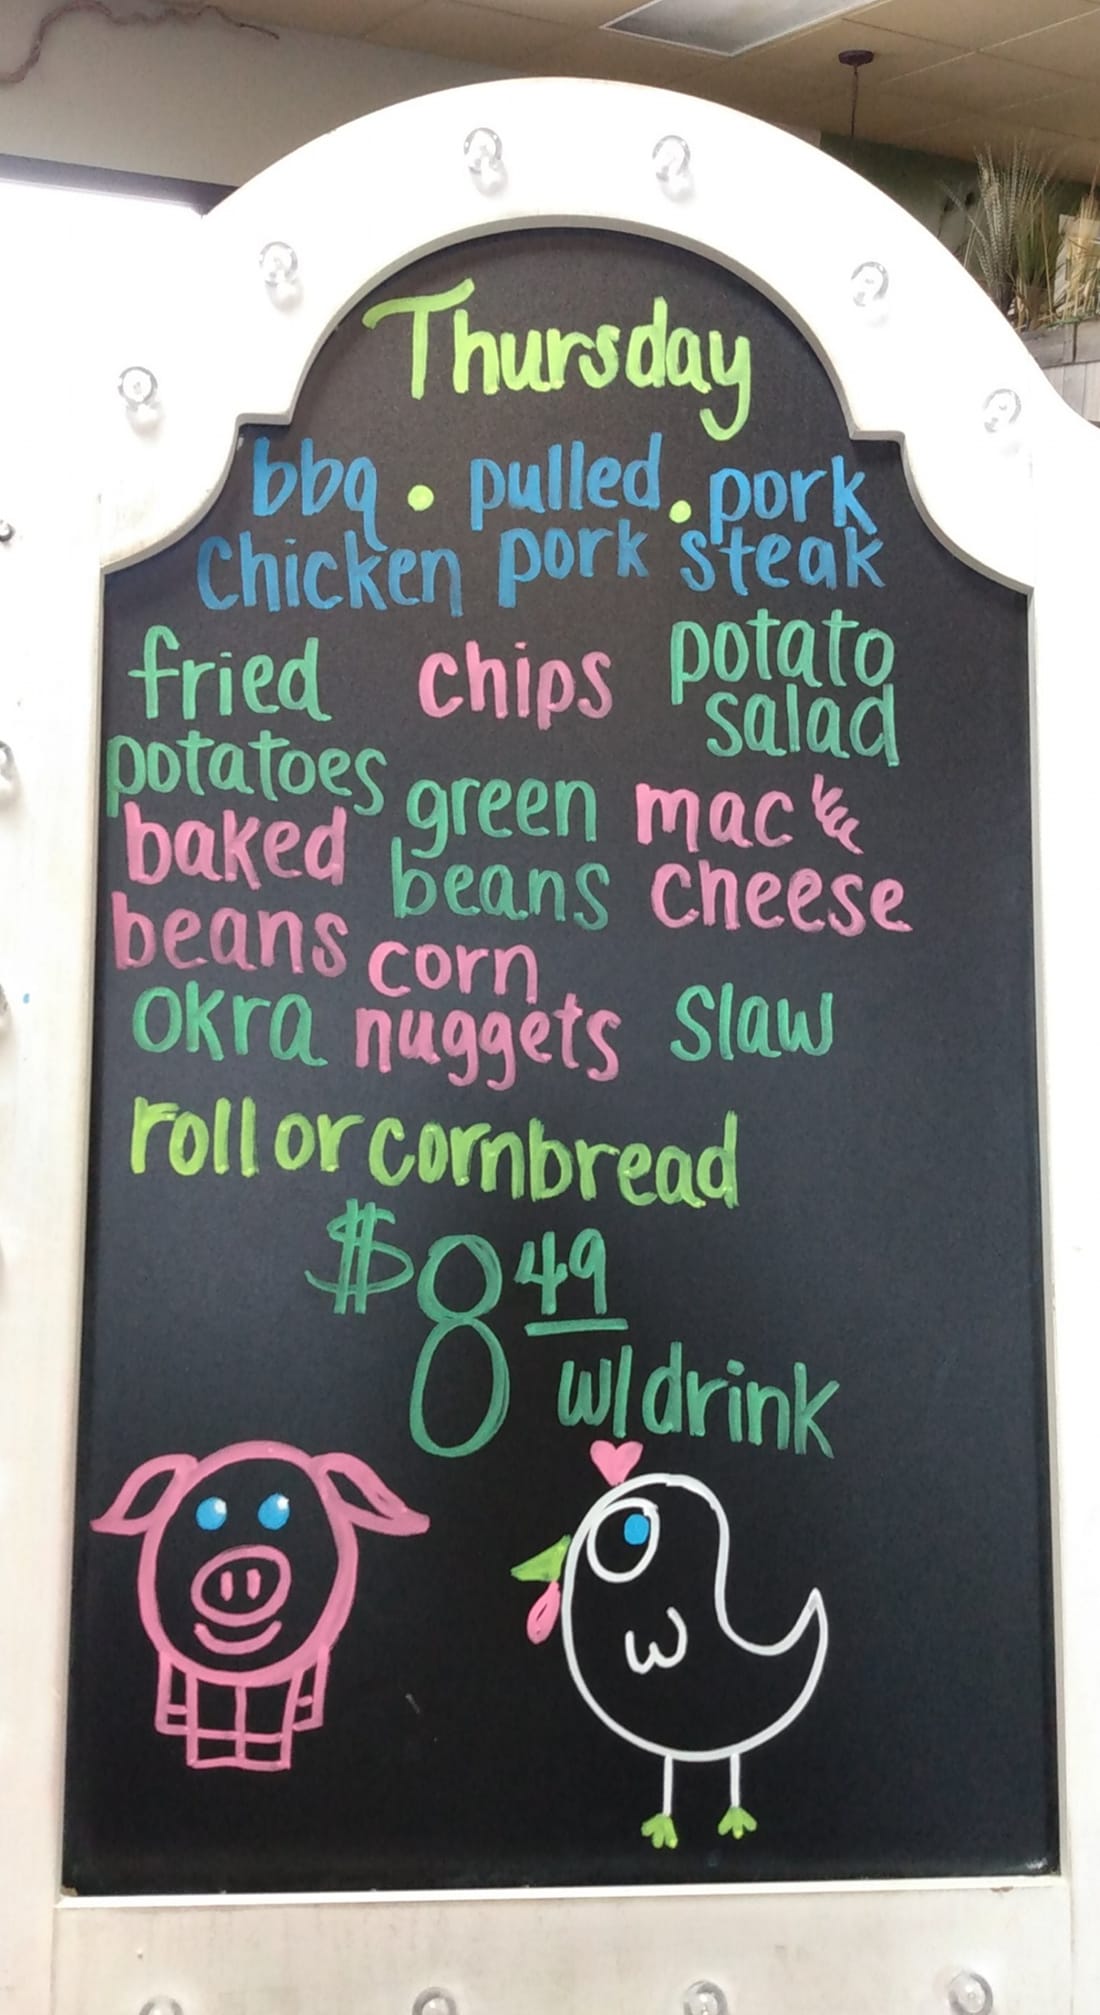 Thursday
bbq • pulled • pork
Chicken pork steak
fried chips potato
salad
potatoes green mac &
baked beans cheese
beans corn
okra nuggets slaw
roll or cornbread
$8 49
w/drink